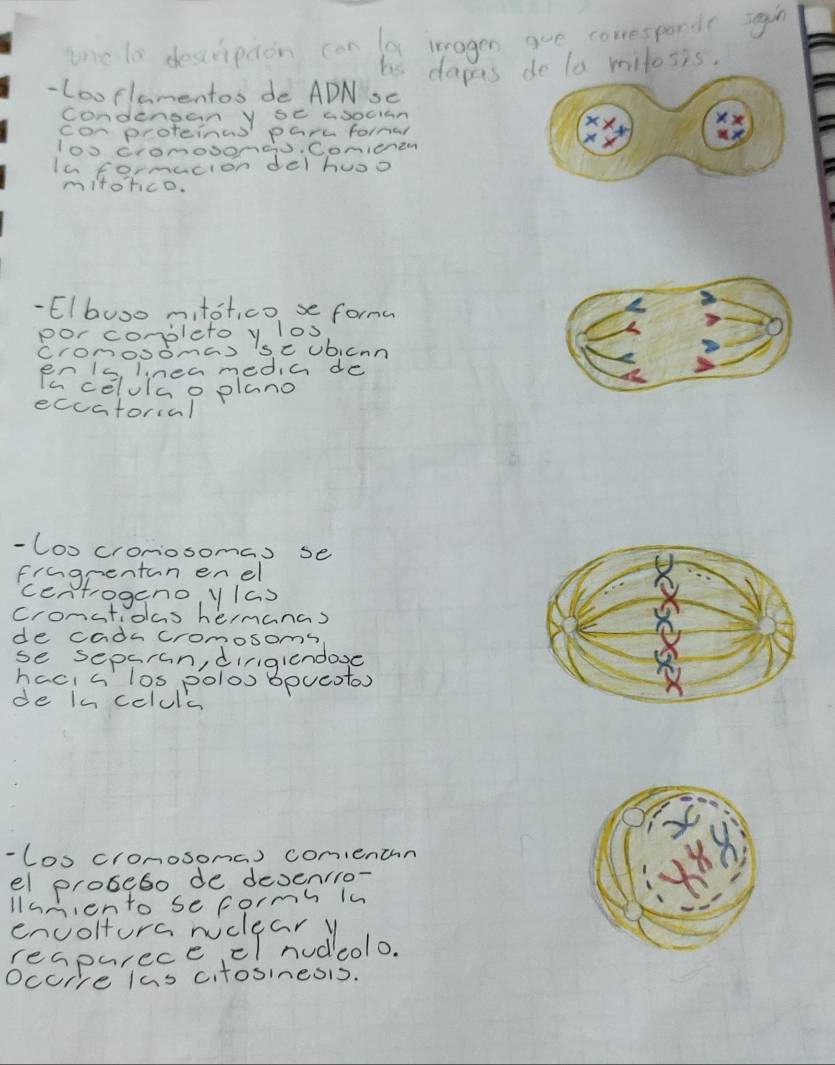 une la descripción con la imagen que corresponde según
las etapas de la mitosis.
-Los flamentos de ADN se
condensan y se asocian
con proteinas para formar
los cromosomas. Comienzan
la formacion del huso
mitótico.
-El huso mitótico se forma
por completo y los
cromosomas se ubican
en la linea media de
la célula o plano
eccatorial
-Los cromosomas se
fragmentan en el
centrogeno y las
cromatidas hermanas
de cada cromosoma
se separan, dirigiendose
hacia los polos opuestos
de la celula
-Los cromosomas comienzan
el proseso de desenrro-
llamiento se forma la
envoltura nuclear y
reaparece el nucleolo.
Ocurre las citosinesis.